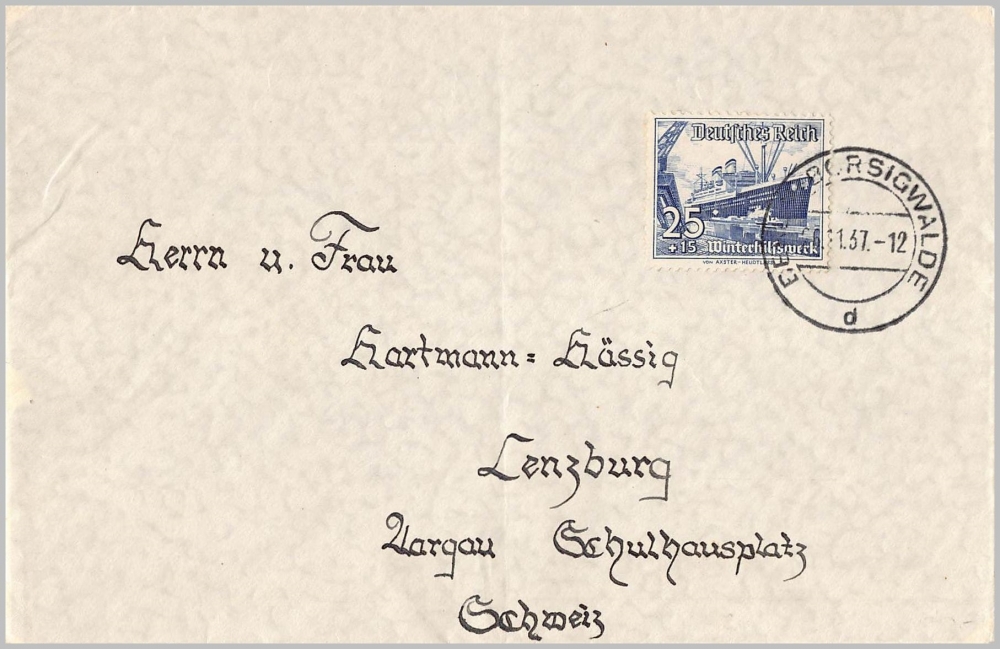 Deutsches Reich
25
+15 Winterhilfswerk
VON AXSTER-HEUDTLASS
BORSIGWALDE
1.37.-12
d
Herrn u. Frau
Hartmann = Hässig
Lenzburg
Aargau Schulhausplatz
Schweiz